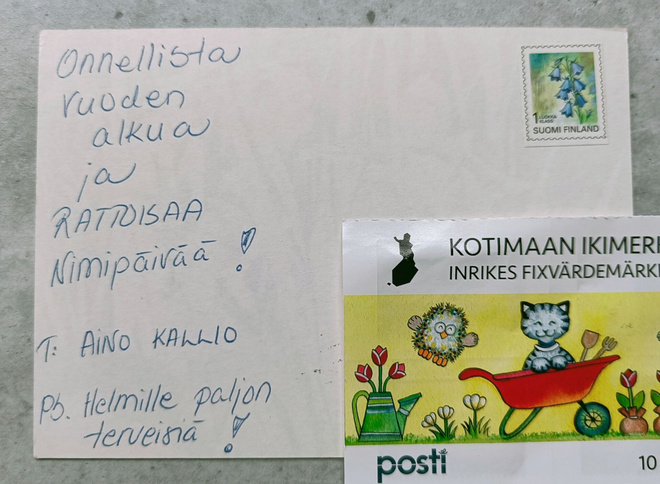 Onnellista
vuoden
alkua
ja
RATTOISAA
Nimipäivää!
T: AINO KALLIO
Ps. Helmille paljon
terveisiä!
1 LUOKKA
KLASS
SUOMI FINLAND
KOTIMAAN IKIMERK
INRIKES FIXVÄRDEMÄRKE
posti
10